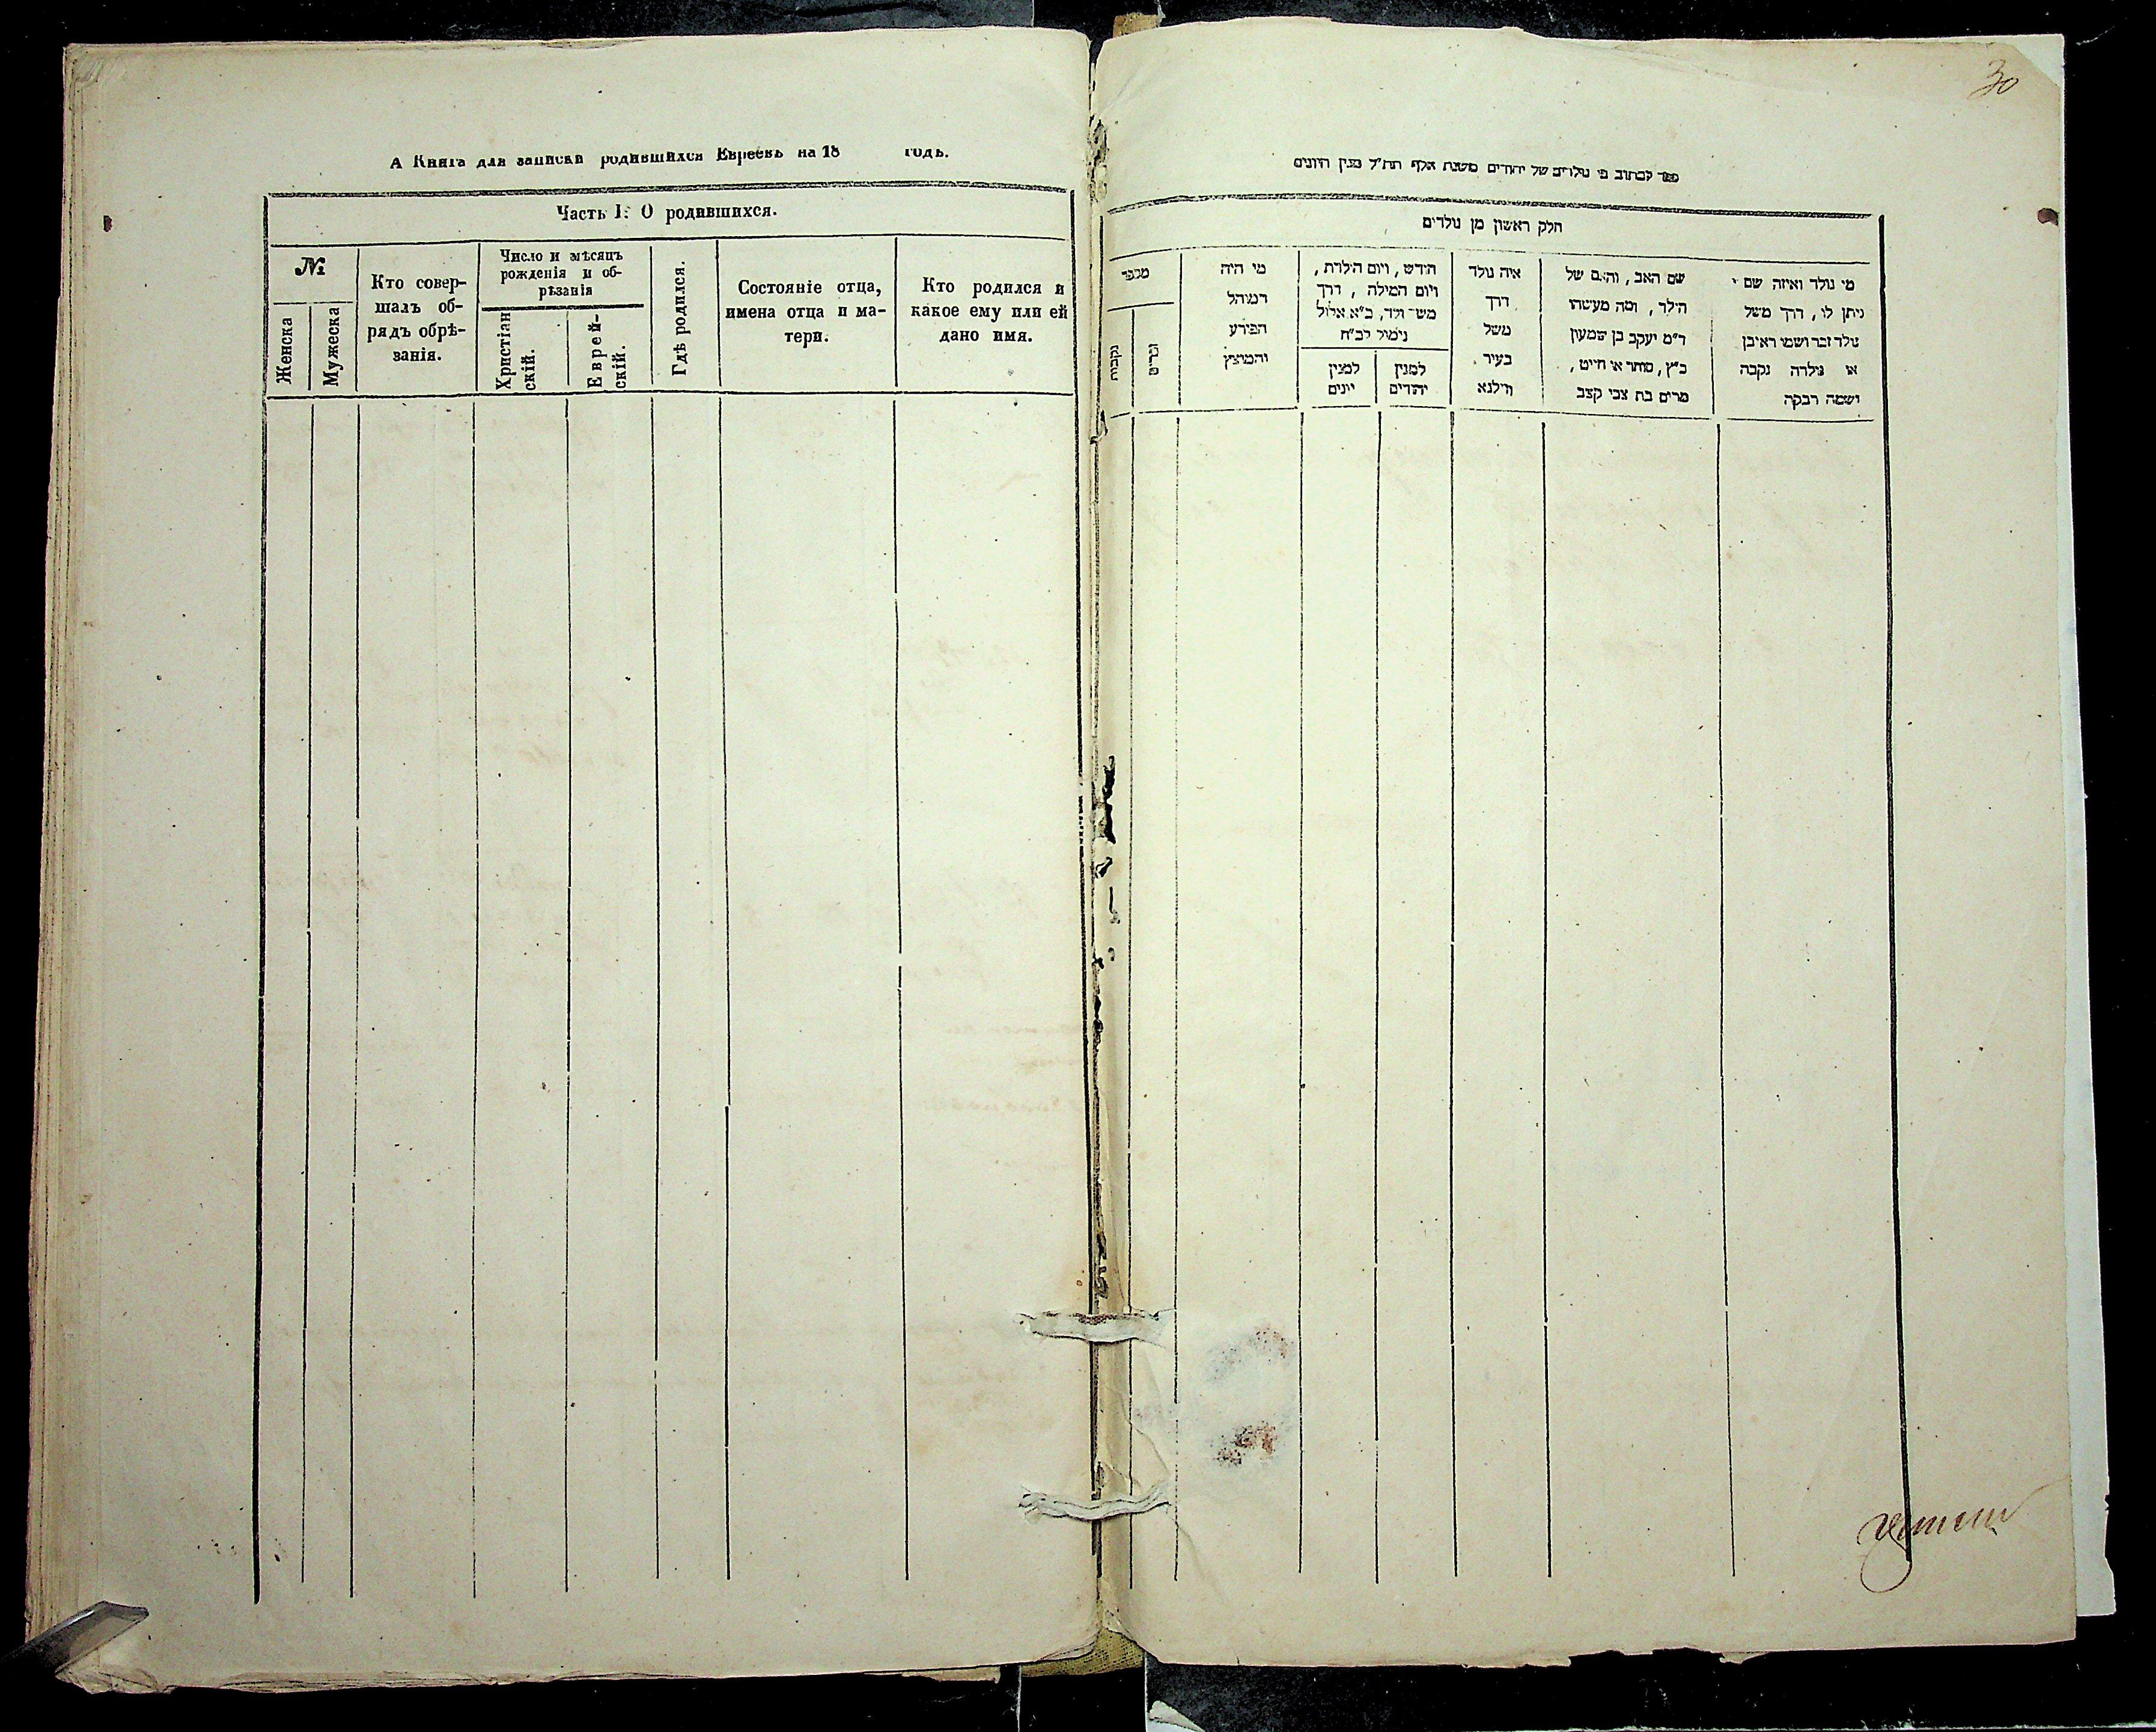 А Книга для записки родившихся Евреевъ на 18 годъ.
Часть I. О родившихся.
№
Женска
Мужеска
Кто совер-
шалъ об-
рядъ обрѣ-
занія.
Число и мѣсяцъ
рожденія и об-
рѣзанія
Христіан
скій.
Еврей-
скій.
Гдѣ родился.
Состояніе отца,
имена отца и ма-
тери.
Кто родился и
какое ему или ей
дано имя.
30
ספר לכתוב מי נולדים של יהודים משנת אלף תת״ל מנין היונים
חלק ראשון מן נולדים
מי נולד ואיזה שם
ניתן לו, דרך משל
נולד זכר ושמו ראובן
או נולדה נקבה
ושמה רבקה
שם האב, והאם של
הילד, ומה מעשהו
ד״מ יעקב בן שמעון
כ״ץ, סוחר או חייט,
מרים בת צבי קצב
איה נולד
דרך
משל
בעיר
ווילנא
חודש, ויום הולדת,
ויום המילה, דרך
משל נולד, כ״א אלול
נימול לכ״ח
למנין
יהודים
למנין
יונים
מי היה
המוהל
הפורע
והמוצץ
מספר
זכרים
נקבות